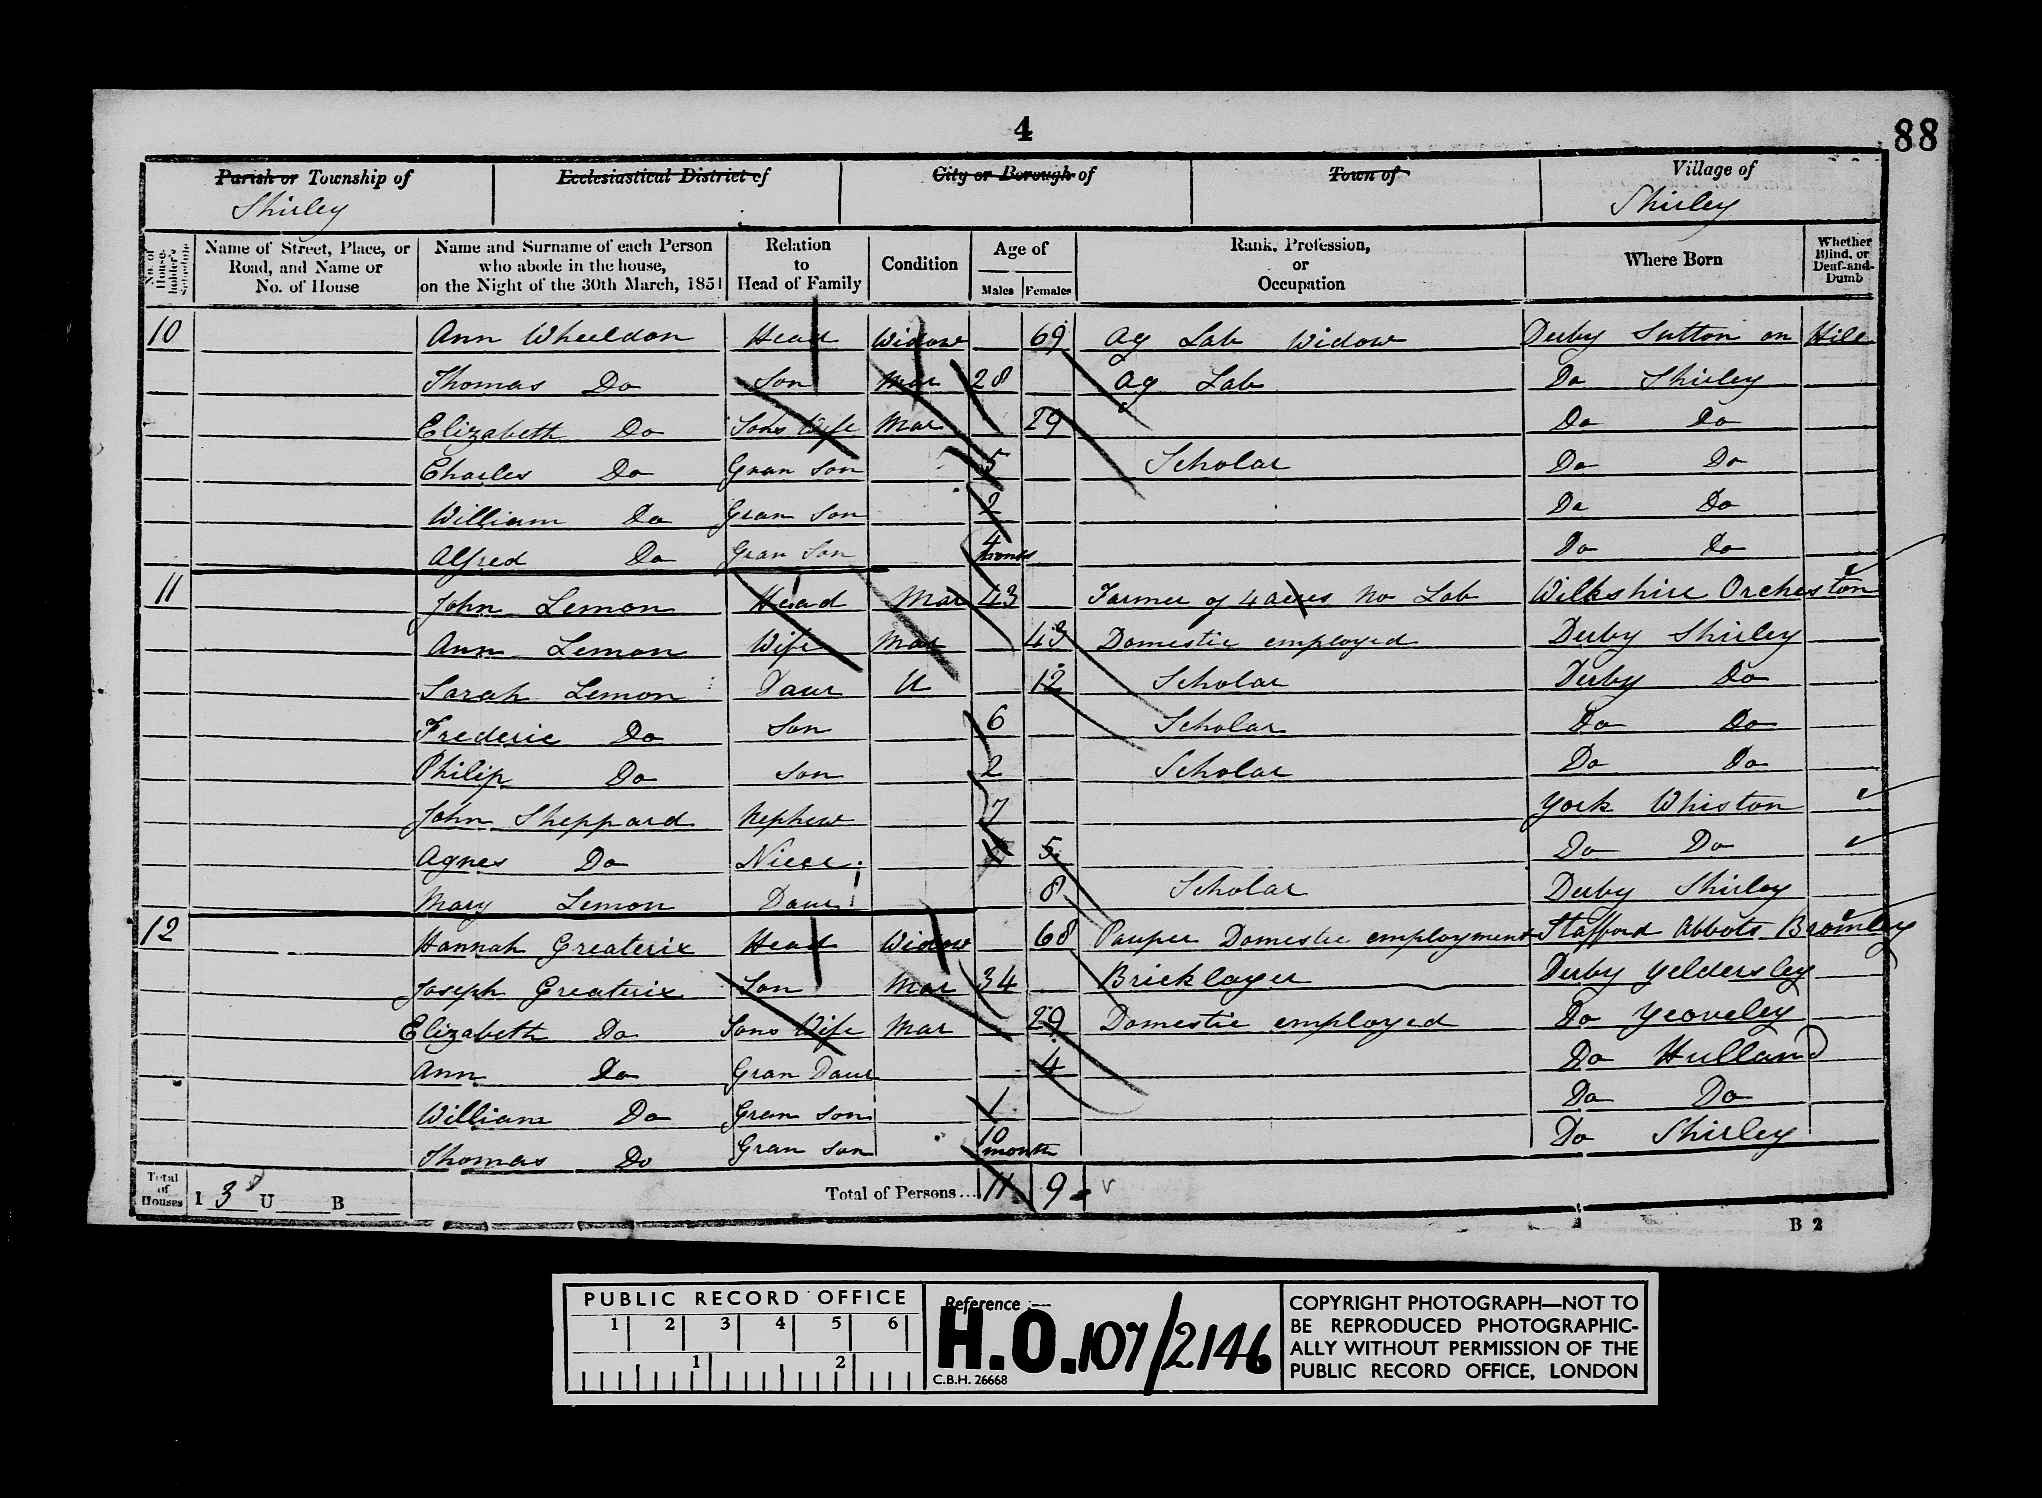 4
88
Parish or Township of
Shirley
Ecclesiastical District of
City or Borough of
Town of
Village of
Shirley
No. of House-holder's Schedule
Name of Street, Place, or Road, and Name or No. of House
Name and Surname of each Person who abode in the house, on the Night of the 30th March, 1851
Relation to Head of Family
Condition
Age of
Males Females
Rank, Profession, or Occupation
Where Born
Whether Blind, or Deaf-and-Dumb
10 Ann Wheeldon Head Widow 69 Ag Lab Widow Derby Sutton on Hill
Thomas Do Son Mar 28 Ag Lab Do Shirley
Elizabeth Do Sons Wife Mar 29 Do Do
Charles Do Gran Son 5 Scholar Do Do
William Do Gran Son 2 Do Do
Alfred Do Gran Son 4 Do Do
11 John Lemon Head Mar 43 Farmer of 4 acres No Lab Wilkshire Orcheston
Ann Lemon Wife Mar 43 Domestic employed Derby Shirley
Sarah Lemon Daur U 12 Scholar Derby Do
Frederic Do Son 6 Scholar Do Do
Philip Do Son 2 Scholar Do Do
John Sheppard Nephew 7 York Whiston
Agnes Do Niece 5 Do Do
Mary Lemon Daur 8 Scholar Derby Shirley
12 Hannah Greaterix Head Widow 68 Pauper Domestic employment Stafford Abbots Bromley
Joseph Greaterix Son Mar 34 Bricklayer Derby Yeldersley
Elizabeth Do Sons Wife Mar 29 Domestic employed Do Yeoveley
Ann Do Gran Daur 4 Do Hulland
William Do Gran Son 1 Do Do
Thomas Do Gran Son 10 month Do Shirley
Total of Houses I 3 U B Total of Persons... 11 9
B 2
PUBLIC RECORD OFFICE
1 2 3 4 5 6
1 2
Reference :—
H.O. 107/2146
C.B.H. 26668
COPYRIGHT PHOTOGRAPH—NOT TO
BE REPRODUCED PHOTOGRAPHIC-
ALLY WITHOUT PERMISSION OF THE
PUBLIC RECORD OFFICE, LONDON